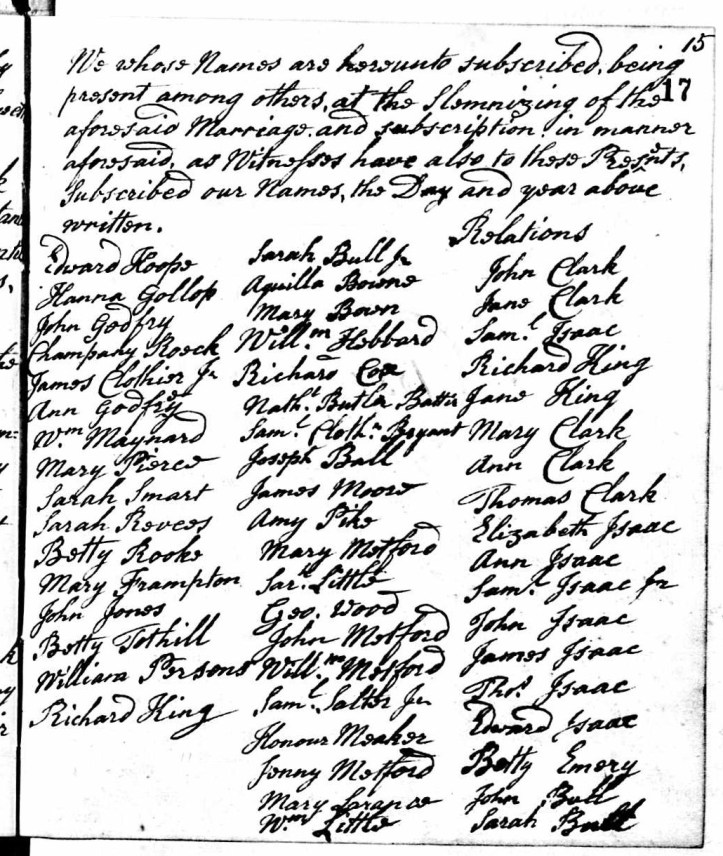 15
17
We whose Names are hereunto subscribed, being
present among others, at the Slemnizing of the
aforesaid Marriage. and subscription. in manner
aforesaid, as Witnesses have also to these Presents,
Subscribed our Names, the Day and year above
written.
Edward Hoope
Hanna Gollop
John Godfry
Champany Roeck
James Clothier Jr
Ann Godfrey
Wm Maynard
Mary Pierce
Sarah Smart
Sarah Revees
Betty Rooke
Mary Frampton
John Jones
Betty Tothill
William Persons
Richard King
Sarah Bull Jr
Aquilla Bowne
Mary Bown
Will.m Hebbard
Richard Cox
Nath.l Butler
Sam.l Cloth.r Bryant
Joseph Ball
James Moore
Amy Pike
Mary Metford
Sar.h Little
Geo. Wood
John Metford
Will.m Metford
Sam.l Salter Jr
Honour Meaker
Jenny Metford
Mary
Wm Little
Relations
John Clark
Jane Clark
Sam.l Isaac
Richard King
Jane King
Mary Clark
Ann Clark
Thomas Clark
Elizabeth Isaac
Ann Isaac
Sam.l Isaac Jn
John Isaac
James Isaac
Tho.s Isaac
Edward Isaac
Betty Emery
John Bull
Sarah Bull